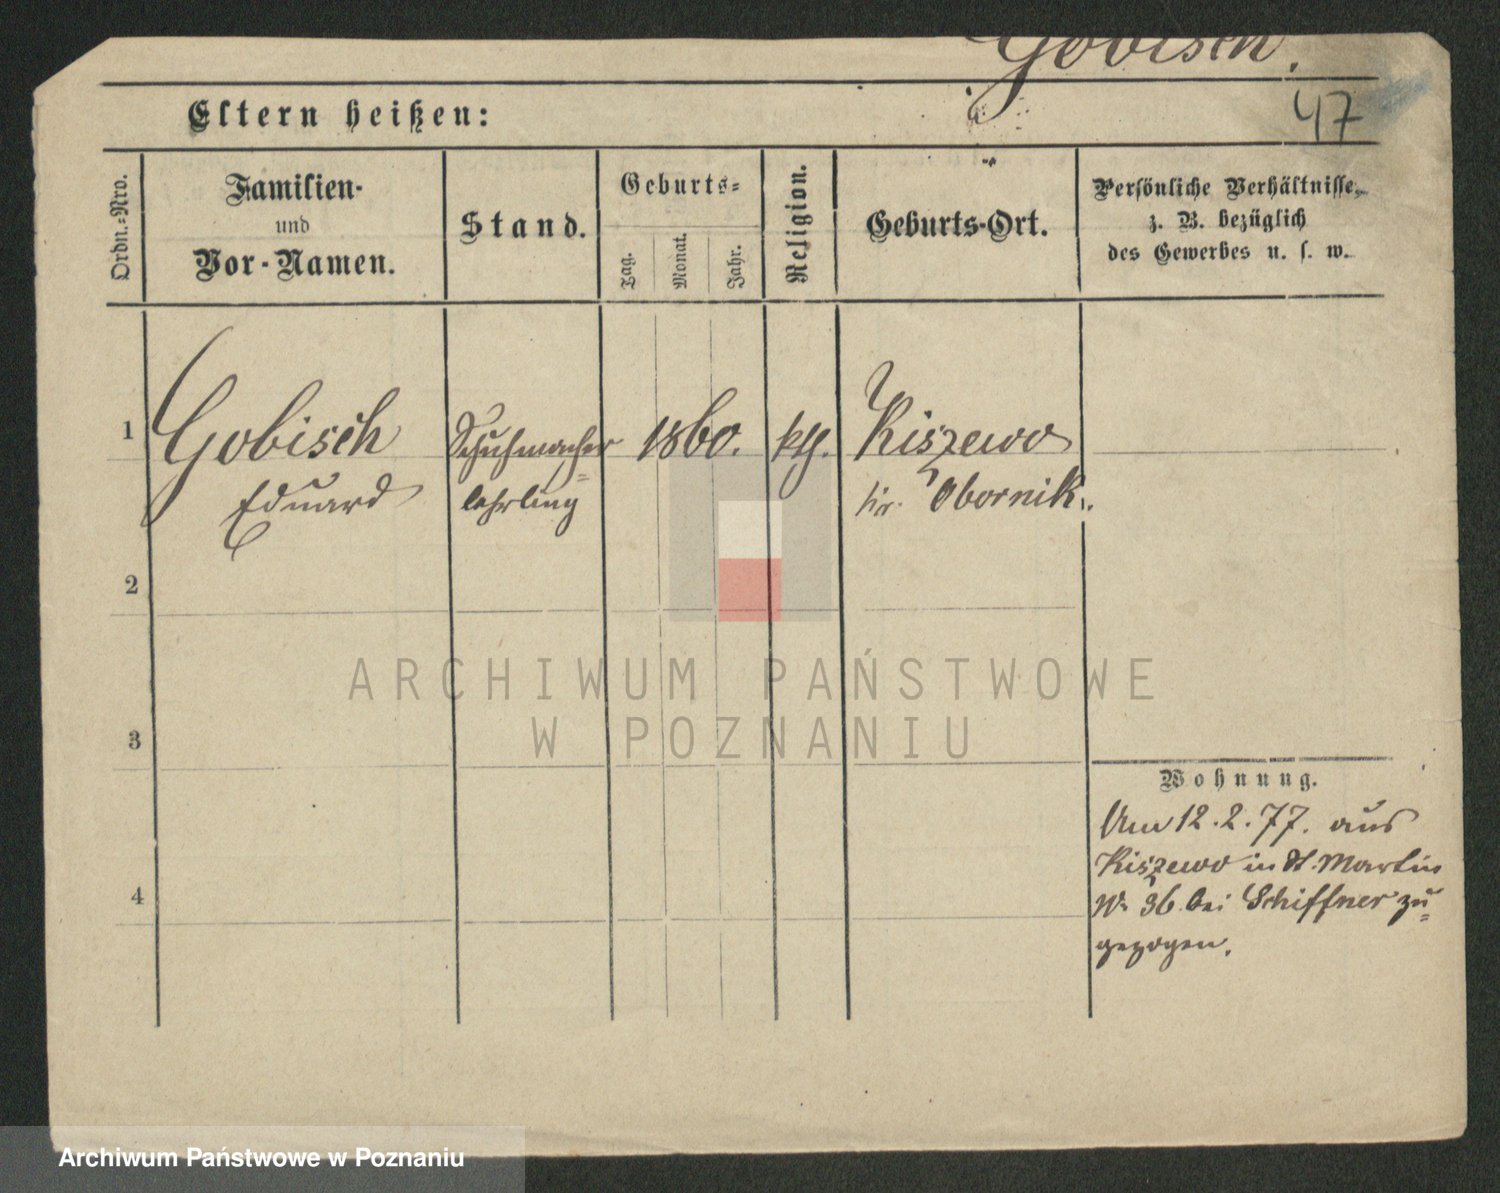 Gobisch.
47
Eltern heißen:
Ordn.-Nro.
Familien-
und
Vor-Namen.
Stand.
Geburts-
Tag.
Monat.
Jahr.
Religion.
Geburts-Ort.
Persönliche Verhältnisse,
z. B. bezüglich
des Gewerbes u. s. w.
1
Gobisch
Eduard
Schuhmacher-
lehrling
1860.
kth.
Kiszewo
Kr. Obornik.
2
3
4
Wohnung.
Am 12.2.77. aus
Kiszewo in St. Martin
No 36 bei Schiffner zu-
gezogen.
ARCHIWUM PAŃSTWOWE
W POZNANIU
Archiwum Państwowe w Poznaniu